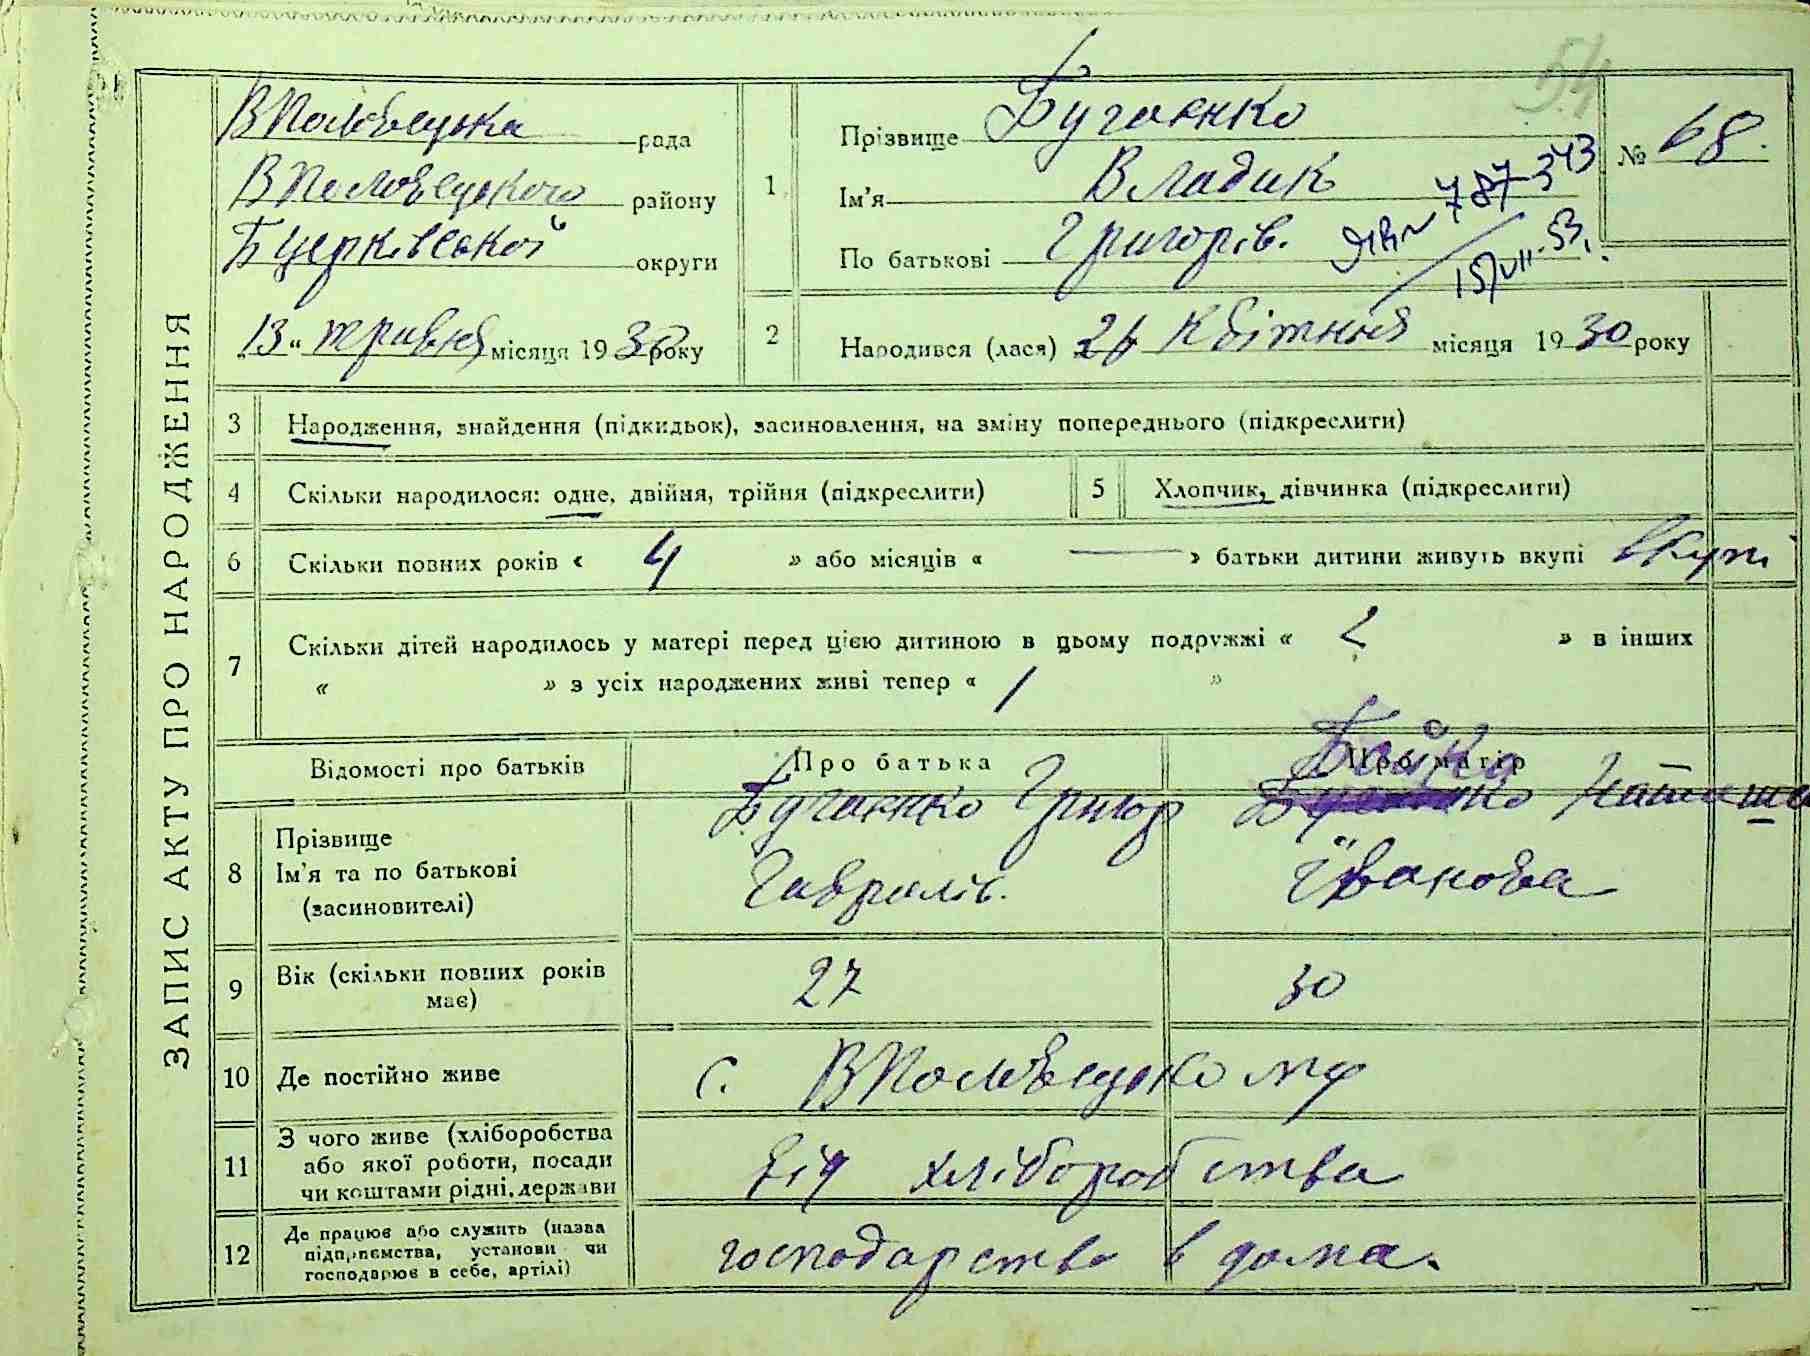 54
ЗАПИС АКТУ ПРО НАРОДЖЕННЯ
ВПоловецька рада
ВПоловецького району
Бцерківської округи
„13“ травня місяця 1930 року
1 Прізвище Бугаєнко
Ім'я Владик
По батькові Григорів.
787343
15/VII-53.
№ 68.
2 Народився (лася) 26 Квітння місяця 1930 року
3 Народження, знайдення (підкидьок), засиновлення, на зміну попереднього (підкреслити)
4 Скільки народилося: одне, двійня, трійня (підкреслити) 5 Хлопчик, дівчинка (підкреслити)
6 Скільки повних років « 4 » або місяців « — » батьки дитини живуть вкупі вкупі
7 Скільки дітей народилось у матері перед цією дитиною в цьому подружжі « 2 » в інших
« » з усіх народжених живі тепер « 1 »
Відомості про батьків Про батька Про матір
Бойко
8 Прізвище Ім'я та по батькові (засиновителі)
Бугаєнко Григор Наташа
Гаврилів. Іванова
9 Вік (скільки повних років має) 27 30
10 Де постійно живе с. ВПоловецькому
11 З чого живе (хліборобства або якої роботи, посади чи коштами рідні, держави
Від хліборобства
12 Де працює або служить (назва підприємства, установи чи господарює в себе, артілі)
господарство в дома.